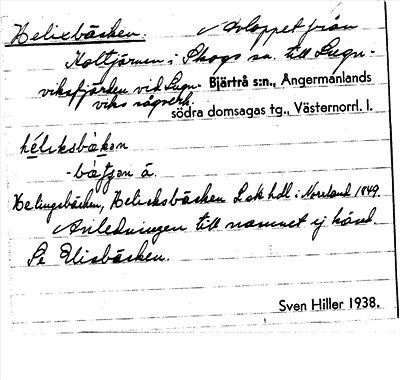 Helixbäcken. Avloppet från
Koltjärnen i Skogs sn. till Lugn-
viksfjärden vid Lugn- Bjärtrå s:n., Ångermanlands
viks sågverk. södra domsagas tg., Västernorrl. l.
héliksbäkən
-bätjən ä.
Helingsbäcken, Helicksbäcken Lsk hdl i Norrland 1849.
Anledningen till namnet ej känd.
Se Elisbäcken.
Sven Hiller 1938.